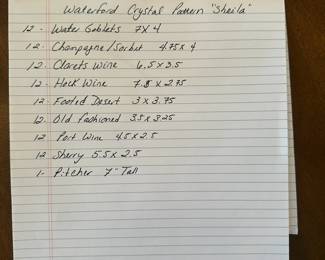 Waterford Crystal Pattern "Sheila"
12- Water Goblets 7x4
12- Champagne/Sorbet 4.75x4
12- Clarets Wine 6.5x3.5
12- Hock Wine 7.5x2.75
12- Footed Desert 3x3.75
12- Old fashioned 3.5x3.25
12 Port Wine 4.5x2.5
12 Sherry 5.5x2.5
1- Pitcher 7" Tall